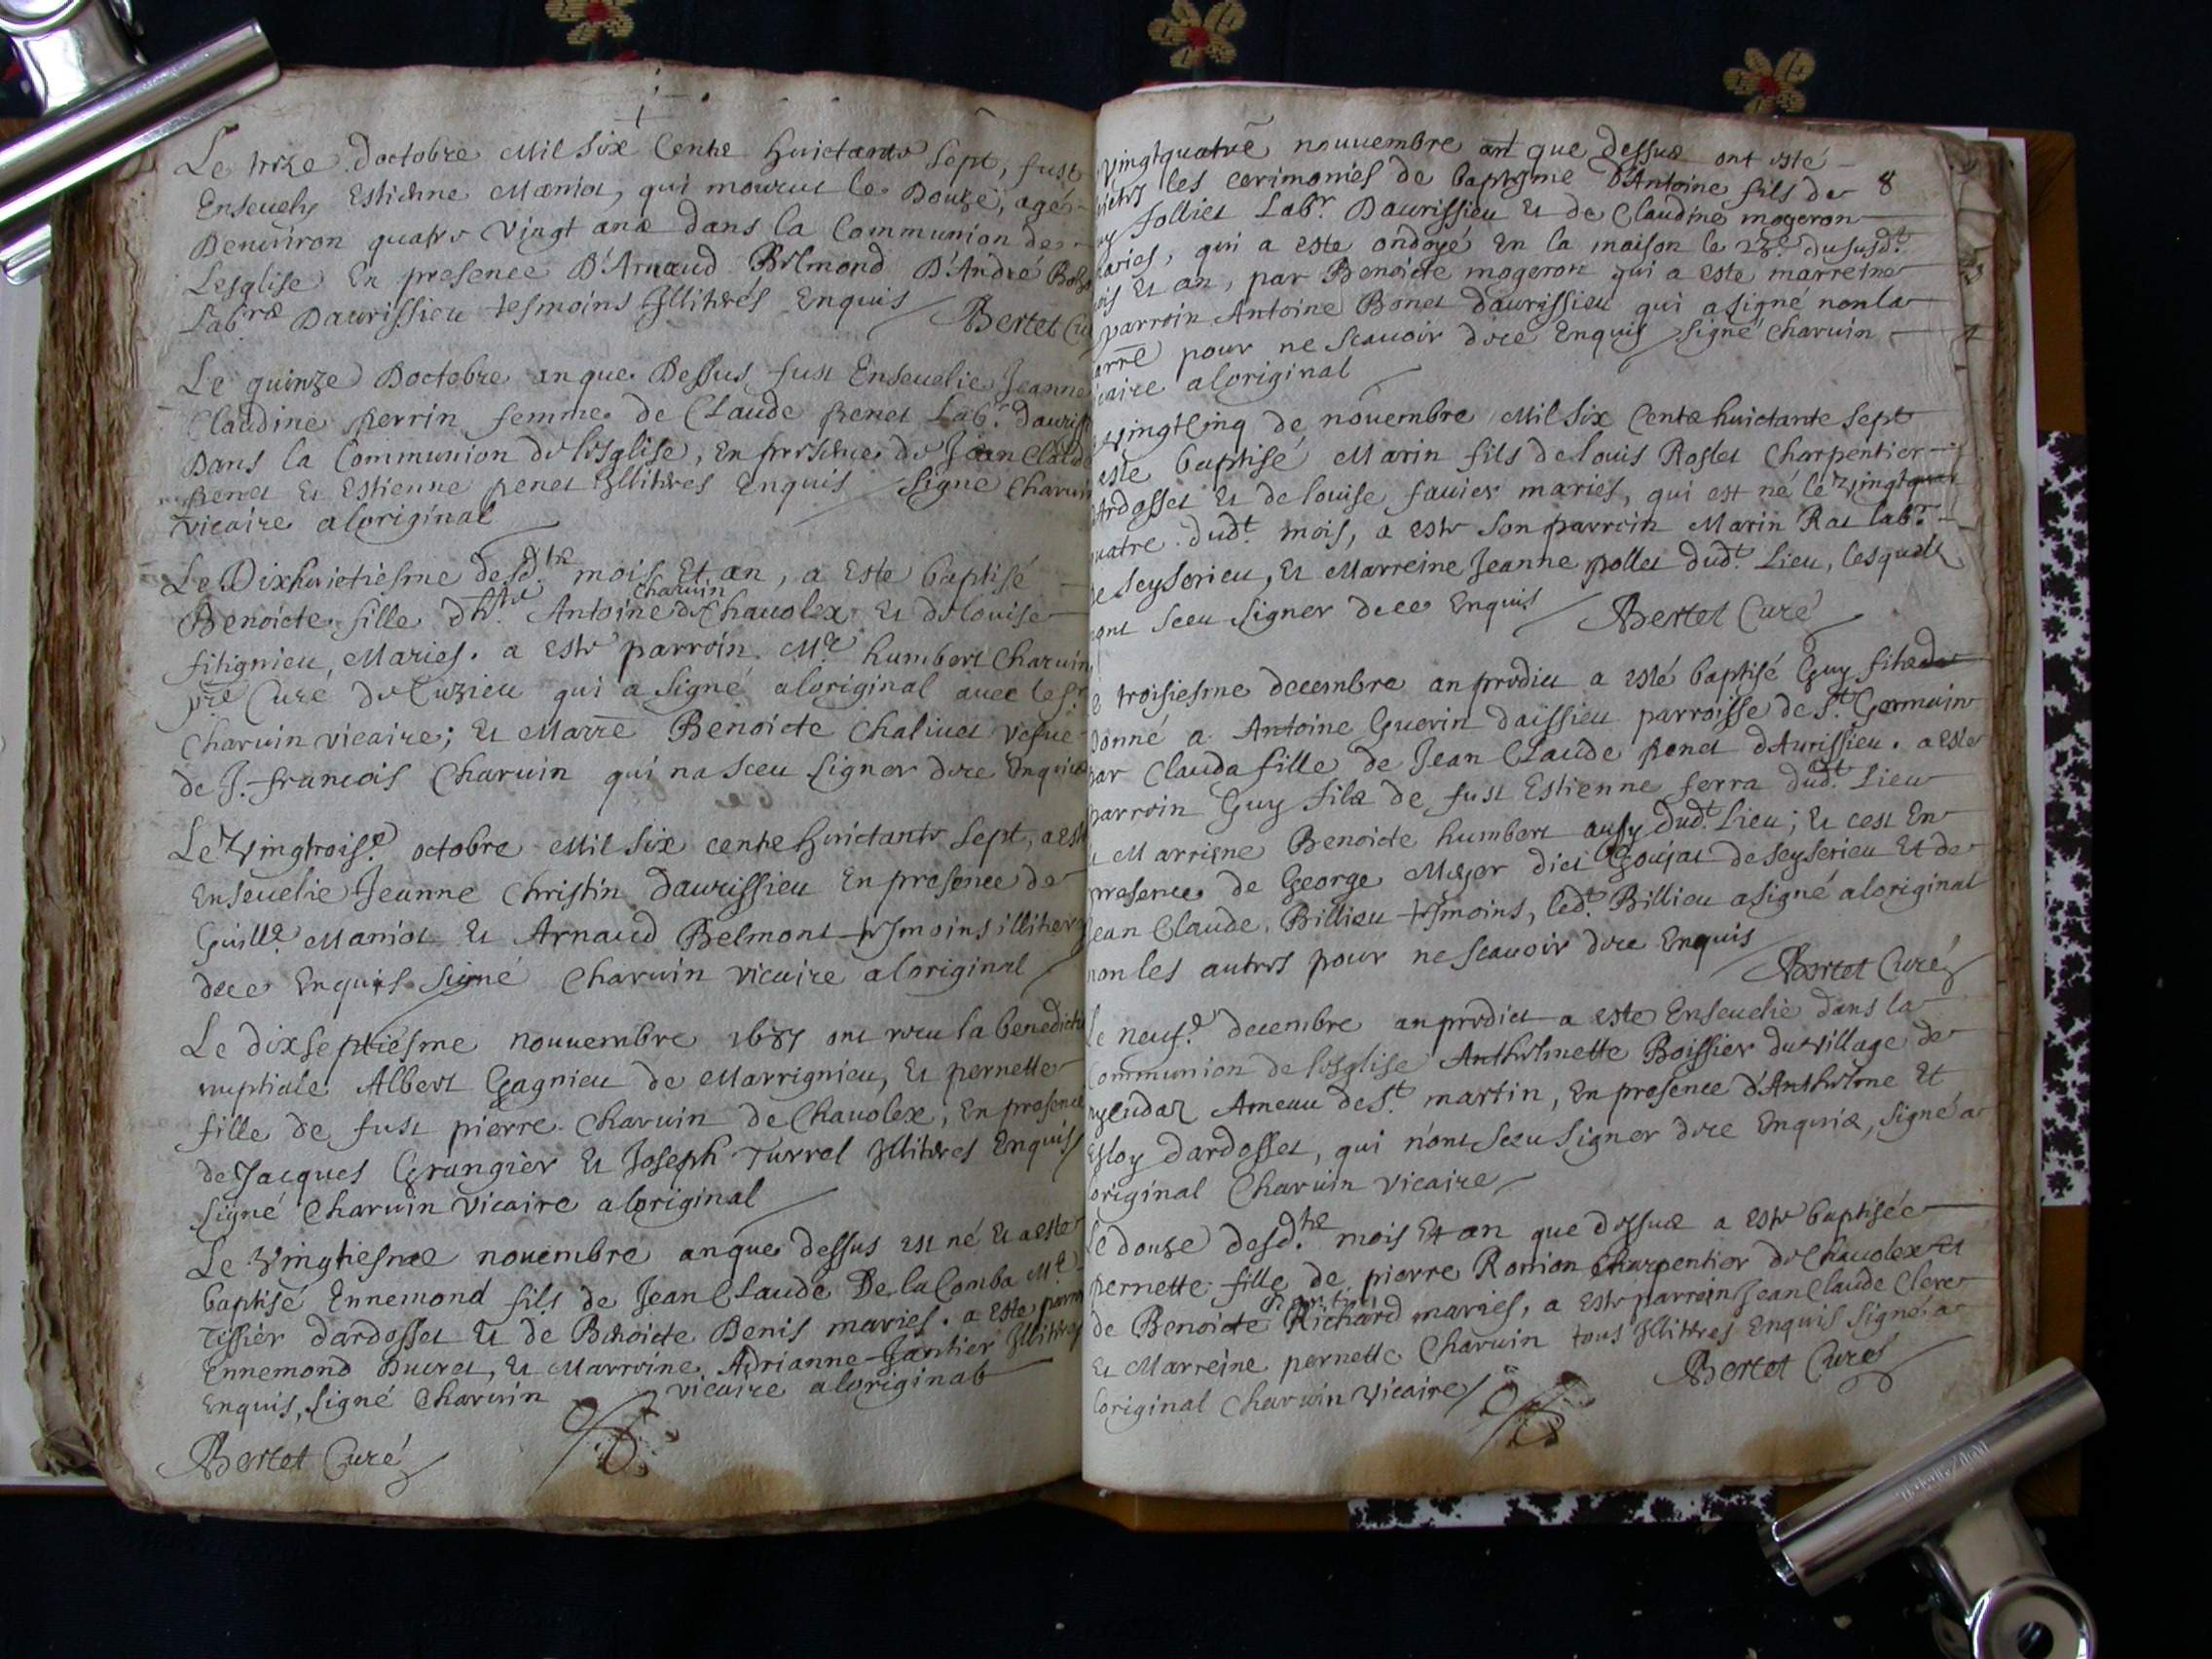 Le treze doctobre Mil Six Cents huictante Sept, fust
Ensevely Estienne Maniot, qui mourut le Douze, agé
Denuiron quatre Vingt ans dans la Communion de
Lesglise En presence D'Arnaud Belmond D'André
Labrs Daurissieu tesmoins Illiteres Enquis Bertet
Le quinze Doctobre an que Dessus fust Enseuelie Jeanne
Claudine perrin femme de Claude penet Labr.
Dans la Communion de lesglise, En presence de Jean Claude
penet Et Estienne penet Illiteres Enquis Signé Charuin
vicaire aloriginal
Le Dixhuictiesme desdts mois Et an, a Este baptisé
Charuin
Benoicte fille dhte Antoine de Chauolex Et de louise
fitignieu, Mariés. a este parroin Mre humbert Charuin
pre Curé de Cuzieu qui a Signé aloriginal auec le Sr
Charuin vicaire; Et Marre Benoicte Chaliuet vefue
de J. francois Charuin qui na Sceu Signer dece Enquise
Le Vingtroise octobre Mil Six cents huictante Sept, a este
Enseuelie Jeanne Christin daurissieu En presence de
Guille Maniot Et Arnaud Belmont tesmoins illiteres
dece Enquis Signé Charuin vicaire aloriginal
Le dixseptiesme nouuembre 1687 ont receu la
nuptiale Albert Gagnieu de Marrignieu, Et pernette
fille de fust pierre Charuin de Chauolex, En presence
de Jacques Grangier Et Joseph Turrel Illiteres Enquis
Signé Charuin Vicaire aloriginal
Le Vingtiesme nouembre anque dessus est né Et a este
baptisé Ennemond fils de Jean Claude De la Comba Me
Tissier dardosset Et de Benoicte Denis mariés. a Este
Ennemond Ducret, Et Marreine Adrianne Jantier Illiteres
Enquis, Signé Charuin vicaire aloriginal
Bertet Curé
8
vingtquatre nouuembre ant que dessus ont esté
les cerimonies de baptesme D'Antoine fils de
Jolliet Labr. Daurissieu Et de Claudine mogeron
mariés, qui a este ondoyé En la maison le 23e du susdt
Et an, par Benoicte mogeron qui a este marreine
parroin Antoine Bonet daurissieu qui a signé non la
marre pour ne Scauoir dece Enquis Signé Charuin
vicaire aloriginal
Vingtcinq de nouembre Mil Six Cents huictante Sept
este baptisé Marin fils de louis Roslet Charpentier
dArdosset Et de louise fauier mariés, qui est né le
quatre dudt mois, a este Son parroin Marin Rat labr
de Seyserieu, Et Marreine Jeanne pollet dudt Lieu, lesquels
nont Sceu Signer dece Enquis Bertet Curé
troisiesme decembre an predict a esté baptisé Guy
donné a Antoine Guerin daissieu parroisse de St Germain
par Clauda fille de Jean Claude penet dAurissieu. a este
parroin Guy fils de fust Estienne ferra dudt Lieu
Marreine Benoicte humbert aussy dudt Lieu; Et cest En
presence de George Meyer dict Goujat de seyserieu Et de
Jean Claude Billieu tesmoins, ledt Billieu asigné aloriginal
non les autres pour ne Scauoir dece Enquis
Bertet Curé
Le neufe decembre an predict a este Enseuelie dans la
Communion de lesglise Anthelmette Boissier du village de
Ameau de St martin, En presence d'Anthelme Et
Esloy dardosset, qui n'ont Sceu Signer dece Enquis, Signé a
loriginal Charuin vicaire
Le douze desdts mois Et an que dessus a este baptisée
pernette fille de pierre Romian Charpentier de Chauolex Et
de Benoicte Richard mariés, a este parroin Jean Claude Clere
Et Marreine pernette Charuin tous Illiteres Enquis Signé a
loriginal Charuin Vicaire Bertet Curé